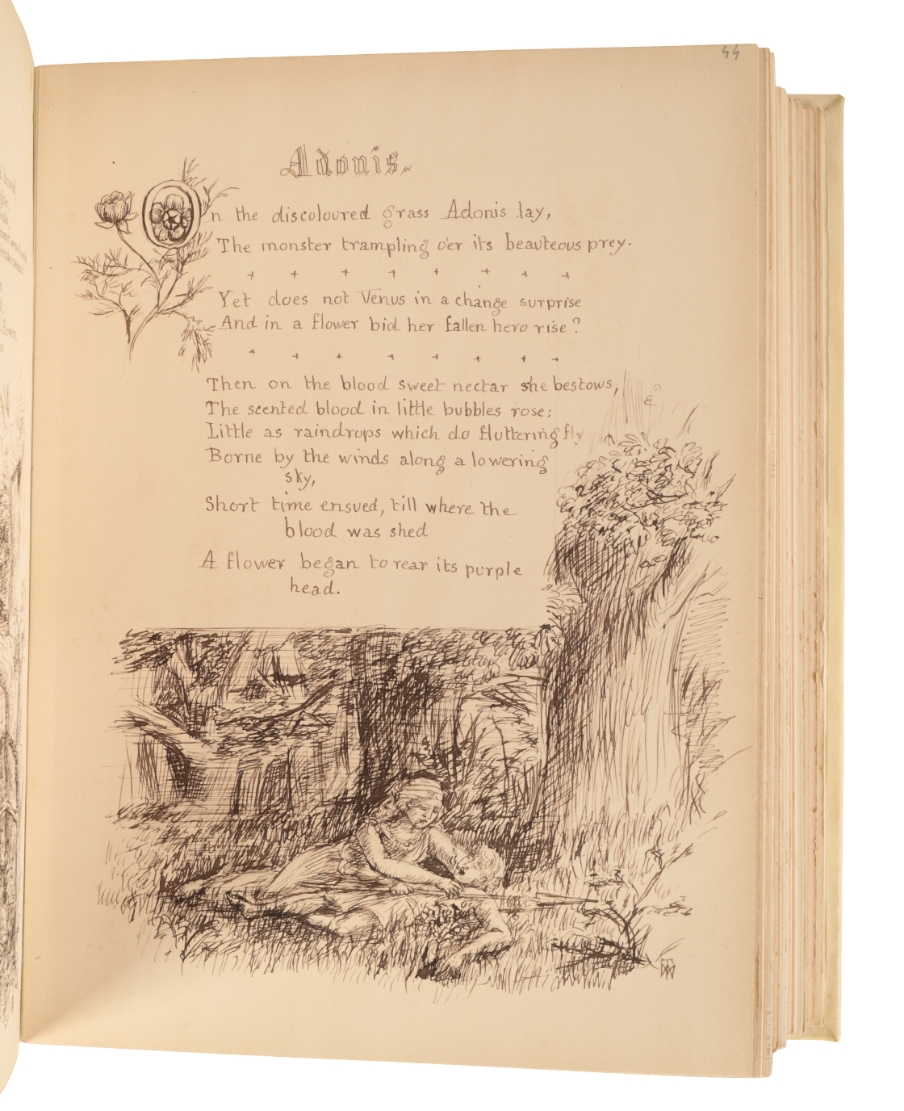 44
Adonis.
On the discoloured grass Adonis lay,
The monster trampling o'er its beauteous prey.
+ + + + + + + +
Yet does not Venus in a change surprise
And in a flower bid her fallen hero rise?
+ + + + + + + +
Then on the blood sweet nectar she bestows,
The scented blood in little bubbles rose:
Little as raindrops which do fluttering fly
Borne by the winds along a lowering
sky,
Short time ensued, till where the
blood was shed
A flower began to rear its purple
head.